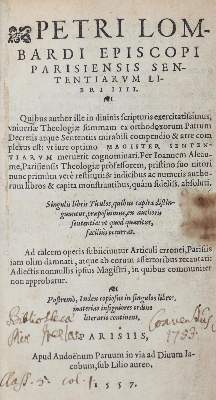 PETRI LOM-
BARDI EPISCOPI
PARISIENSIS SEN-
TENTIARVM LI
BRI IIII.
Quibus author ille in diuinis scriptoris exercitatissimus,
vniuersæ Theologiæ summam ex orthodoxorum Patrum
Decretis atque Sententiis mirabili compendio & arte com
plexus est: vt iure optimo MAGISTER SENTEN
TIARVM meruerit cognominari. Per Ioannem Aleau-
me, Parisiensis Theologiæ professorem, pristino suo nitori
nunc primùm verè restituti: & indicibus ac numeris autho-
rum libros & capita monstrantibus, quàm fidelis. absoluti.
Singulis libris Titulos, quibus capita distin-
guuntur, præposuimus, ex authoris
sententia: vt quod quæritur,
facilius occurrat.
Ad calcem operis subiiciuntur Articuli erronei, Parisiis
iam olim damnati, atque ab eorum assertoribus reuocati:
Adiectis nonnullis ipsius Magistri, in quibus communiter
non approbatur.
Postremò, Index copiosus in singulos libros,
materias insigniores ordine
literario continens,
Bibliotheca
Conventus
1753
PARISIIS,
Apud Audoënum Paruum in via ad Diuum Ia-
cobum, sub Lilio aureo,
Class. 5. col.
1557.